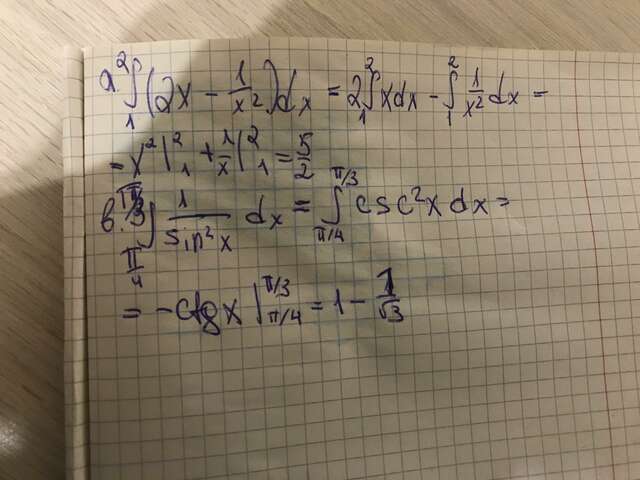 a ∫₁² (2x - 1/x²)dx = 2∫₁² xdx - ∫₁² 1/x² dx =
= x²|₁² + 1/x|₁² = 5/2
в. ∫_{π/4}^{π/3} 1/sin²x dx = ∫_{π/4}^{π/3} csc²x dx =
= -ctg x |_{π/4}^{π/3} = 1 - 1/√3